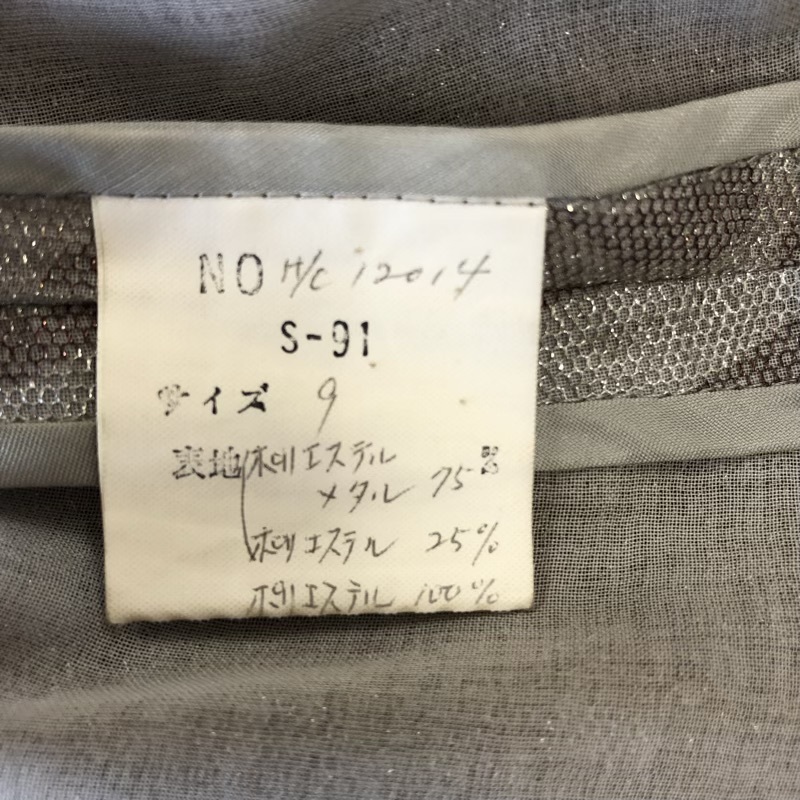 NO H/C 12014
S-91
サイズ 9
表地 ポリエステル %
メタル 75
ポリエステル 25%
ポリエステル 100%